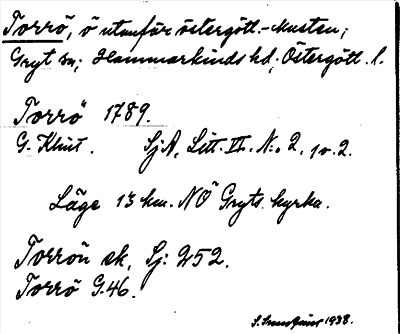 Torrö, ö utanför östergött.-kusten;
Gryt sn; Hammarkinds hd; Östergötl. l.
Torrö 1789.
G. Klint. SjA, Litt. II. N:o 2, 10.2.
Läge 13 km. NÖ Gryts kyrka.
Torrön ek. Sj: 252.
Torrö G.46.
S. 1938.